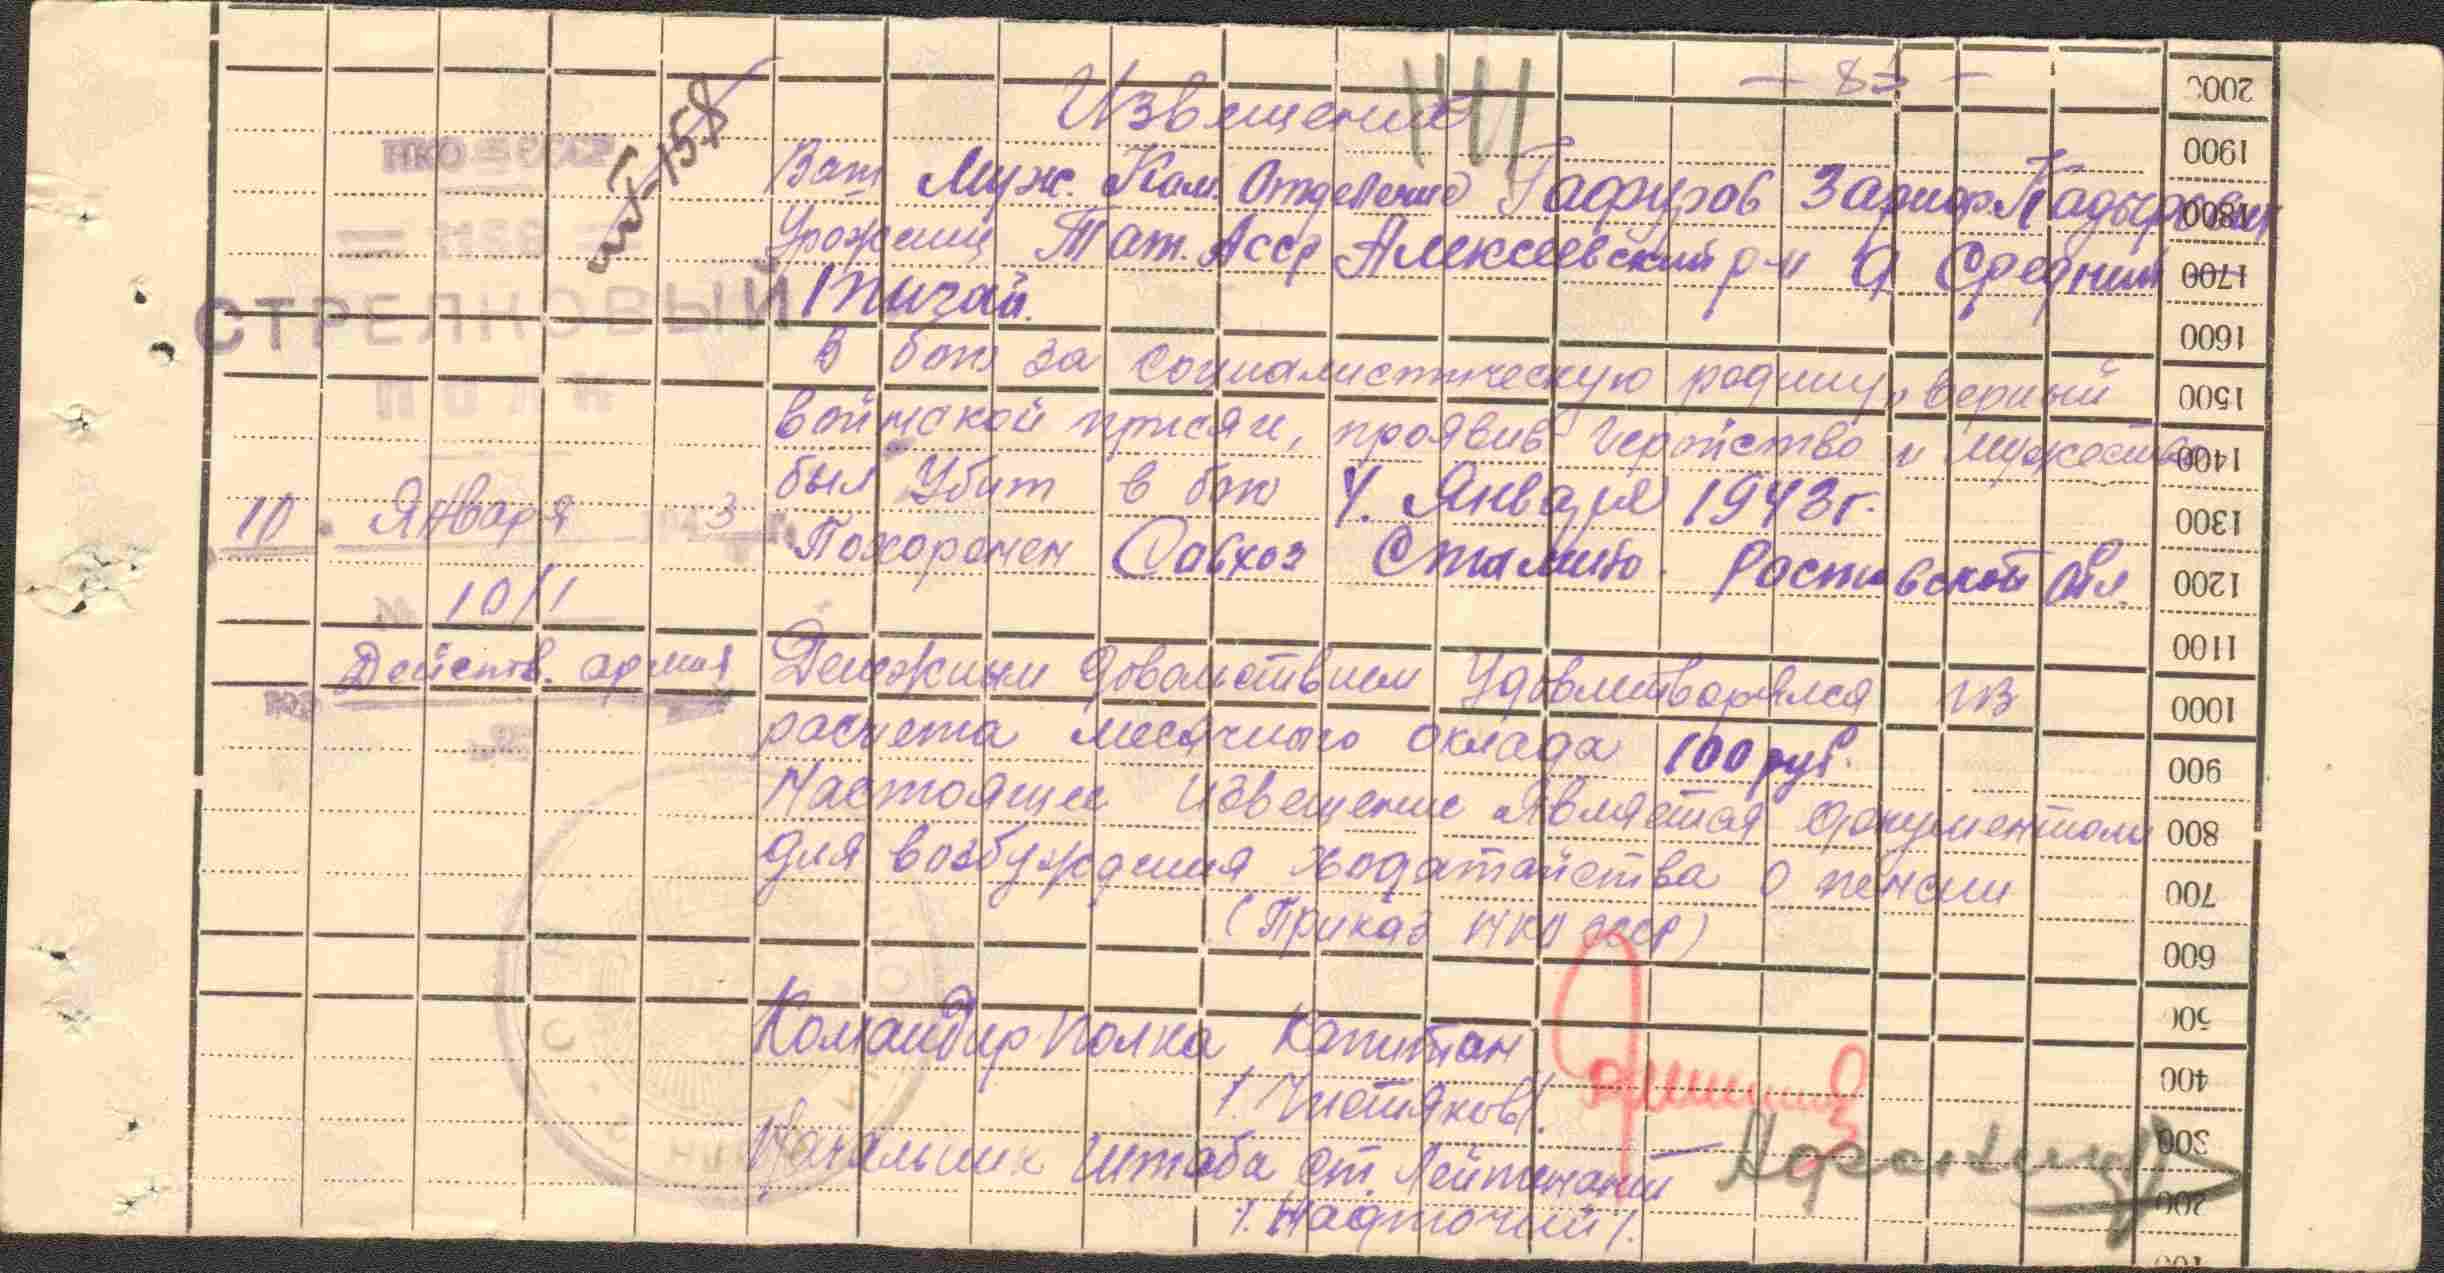 Извещение
Ваш Муж. Ком. Отделение Гафуров Зариф Кадырович
Урожениц Тат. Асср Алексеевский р-н д Средний
Тигай.
В бою за социалистическую родину, верный
воинской присяги, проявив Геройство и мужество
был Убит в бою 4. Января 1943 г.
Похоронен Совхоз Сталино. Ростовской обл.
Денежным довольствием Удовлетворялся из
расчета месячного оклада 100 руб.
Настоящее извещение является документом
для возбуждения ходатайства о пенсии
(Приказ НКО СССР)
Командир полка Капитан
/. Чистяков/.
Начальник штаба ст. Лейтенант
/. Надточий /.
НКО СССР
СТРЕЛКОВЫЙ
ПОЛК
10 Января 1943 г.
№ 10/1
Действ. армия
2000
1900
1800
1700
1600
1500
1400
1300
1200
1100
1000
900
800
700
600
500
400
300
200
100